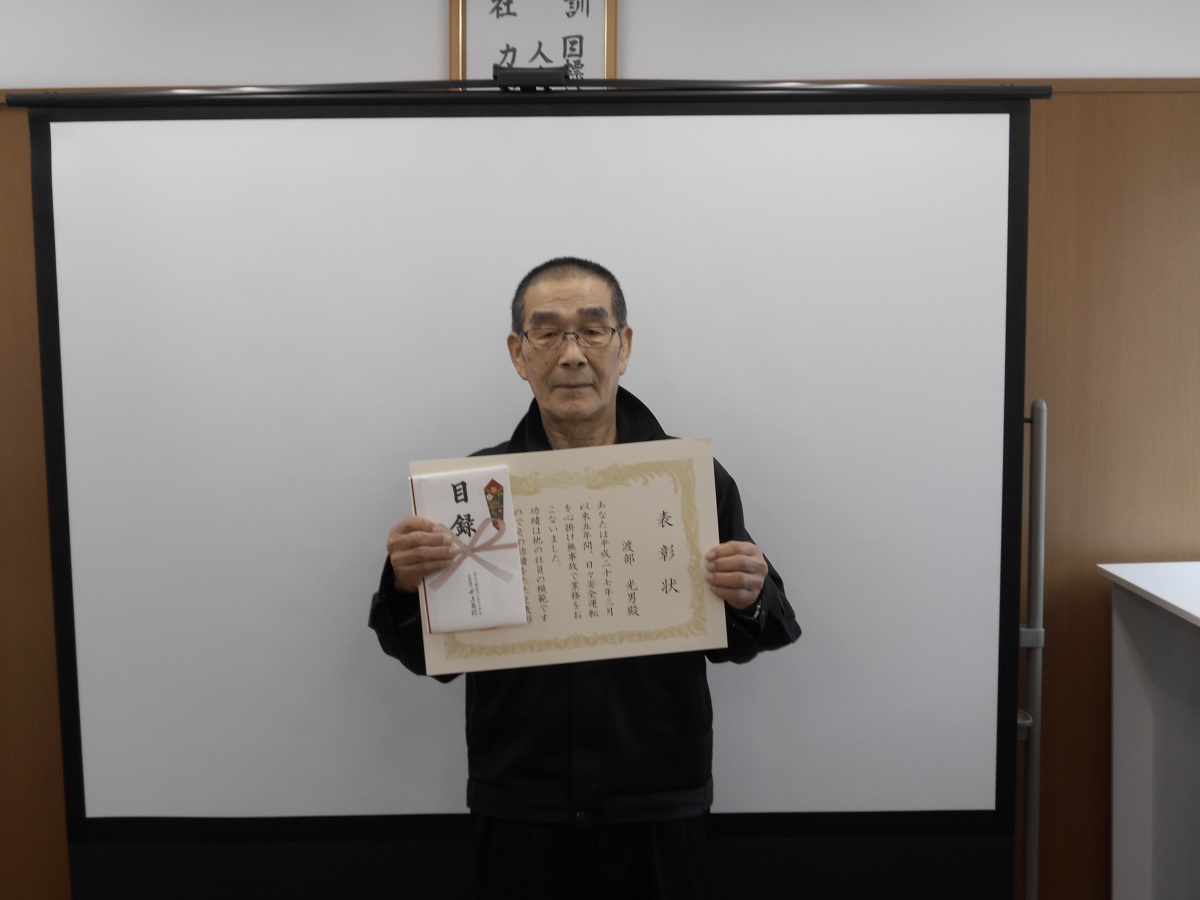 訓
目標
人
社
力
表彰状
渡部 光男殿
あなたは平成二十七年三月
以来五年間、日々安全運転
を心掛け無事故で業務をお
こないました。
功績は他の社員の模範です
のでその功績を
目録